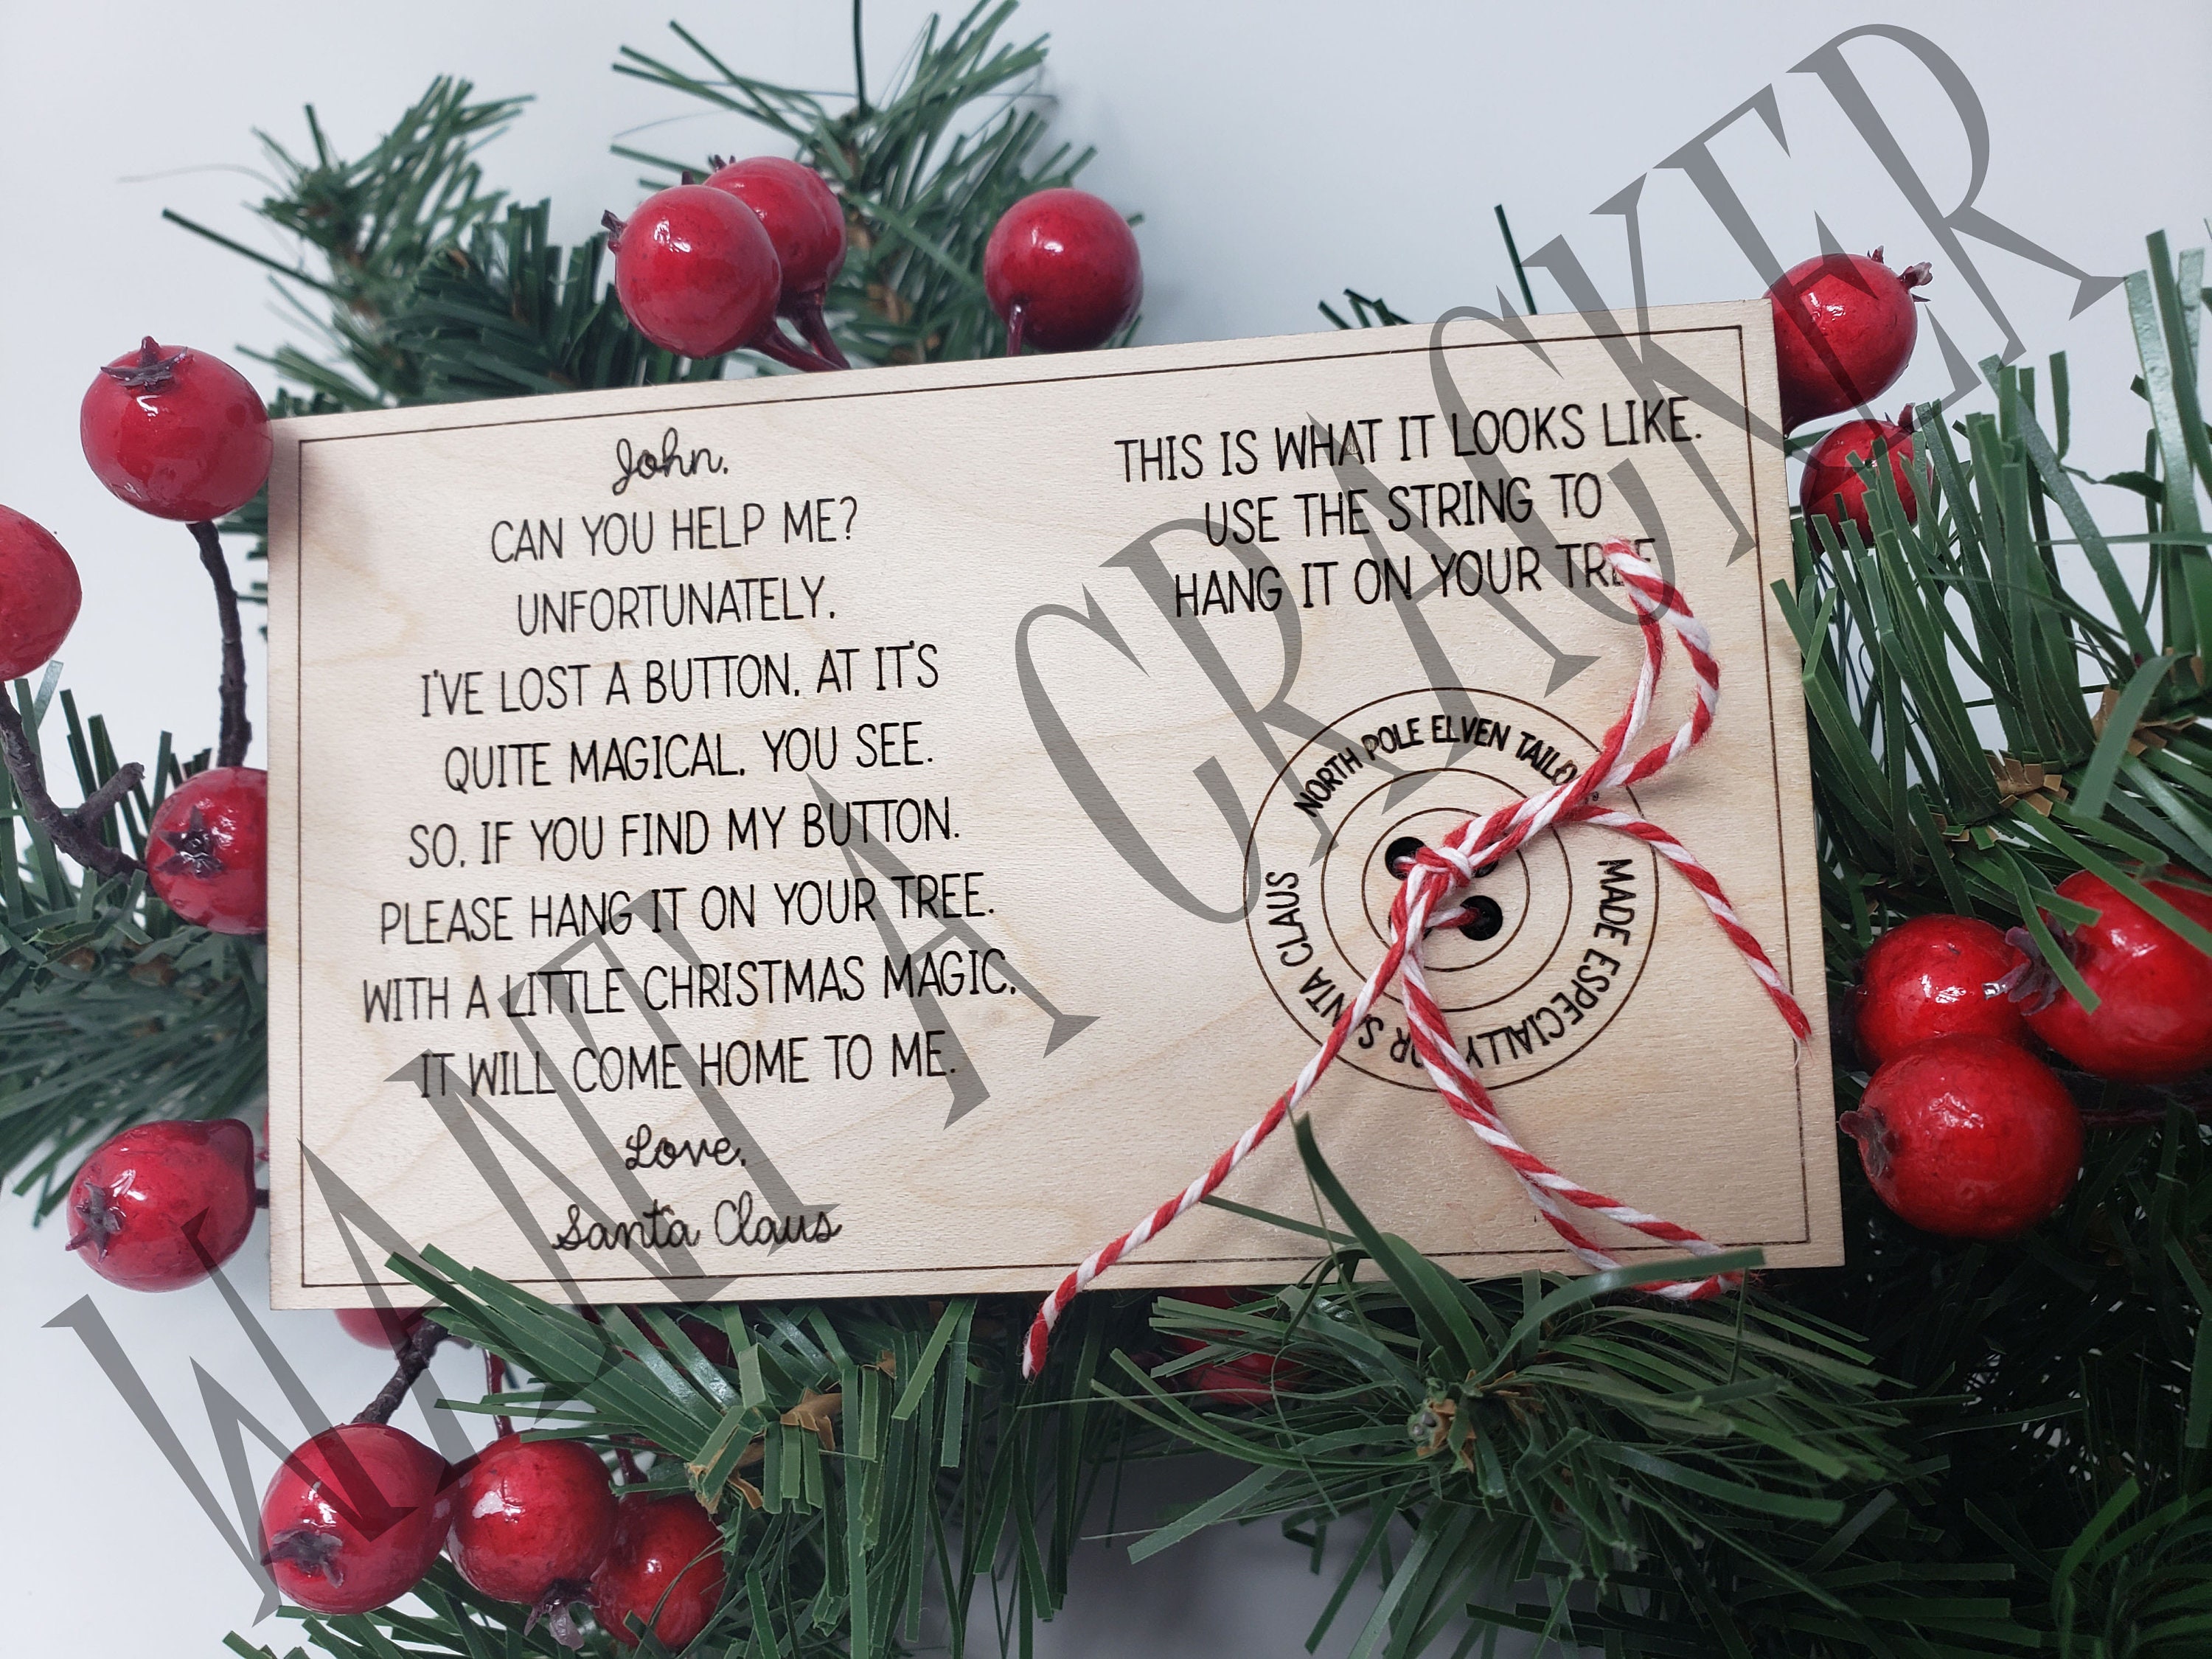 John,
CAN YOU HELP ME?
UNFORTUNATELY,
I'VE LOST A BUTTON, AT IT'S
QUITE MAGICAL, YOU SEE.
SO, IF YOU FIND MY BUTTON,
PLEASE HANG IT ON YOUR TREE.
WITH A LITTLE CHRISTMAS MAGIC,
IT WILL COME HOME TO ME.
Love,
Santa Claus
THIS IS WHAT IT LOOKS LIKE.
USE THE STRING TO
HANG IT ON YOUR TREE
NORTH POLE ELVEN
MADE ESPECIALLY FOR SANTA CLAUS
WANT A CRACKER